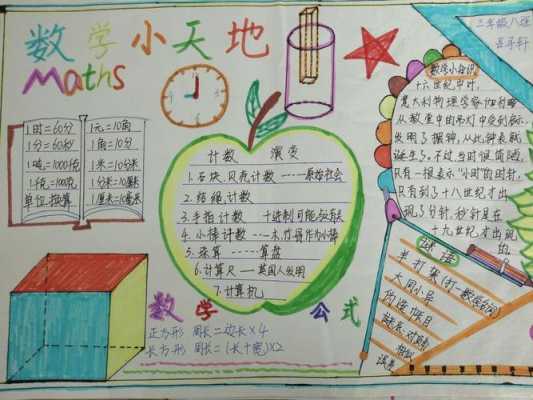 数学小天地
Maths
三年级八班
1时=60分
1分=60秒
1吨=1000千克
1千克=1000克
单位换算
1元=10角
1角=10分
1米=10分米
1分米=10厘米
1厘米=10毫米
计数 演变
1.石块、贝壳计数----原始社会
2.结绳计数
3.手指计数 十进制可能与有关
4.小棒计数---木竹骨作为小棒
5.珠算----算盘
6.计算尺---英国人发明
7.计算机
数学公式
正方形 周长=边长×4
长方形 周长=(长+宽)×2
数学小知识
十六世纪中叶,
意大利物理学家伽利略
从教堂中的吊灯中受到启示,
发明了摆钟,从此钟表就
诞生了。不过当时很简陋,
只有一根表示"小时"的时针,
只有到了十八世纪才出
现了分针,秒针是在
十九世纪才出现
的。
谜语
半打(打一数学名词)
大同小异